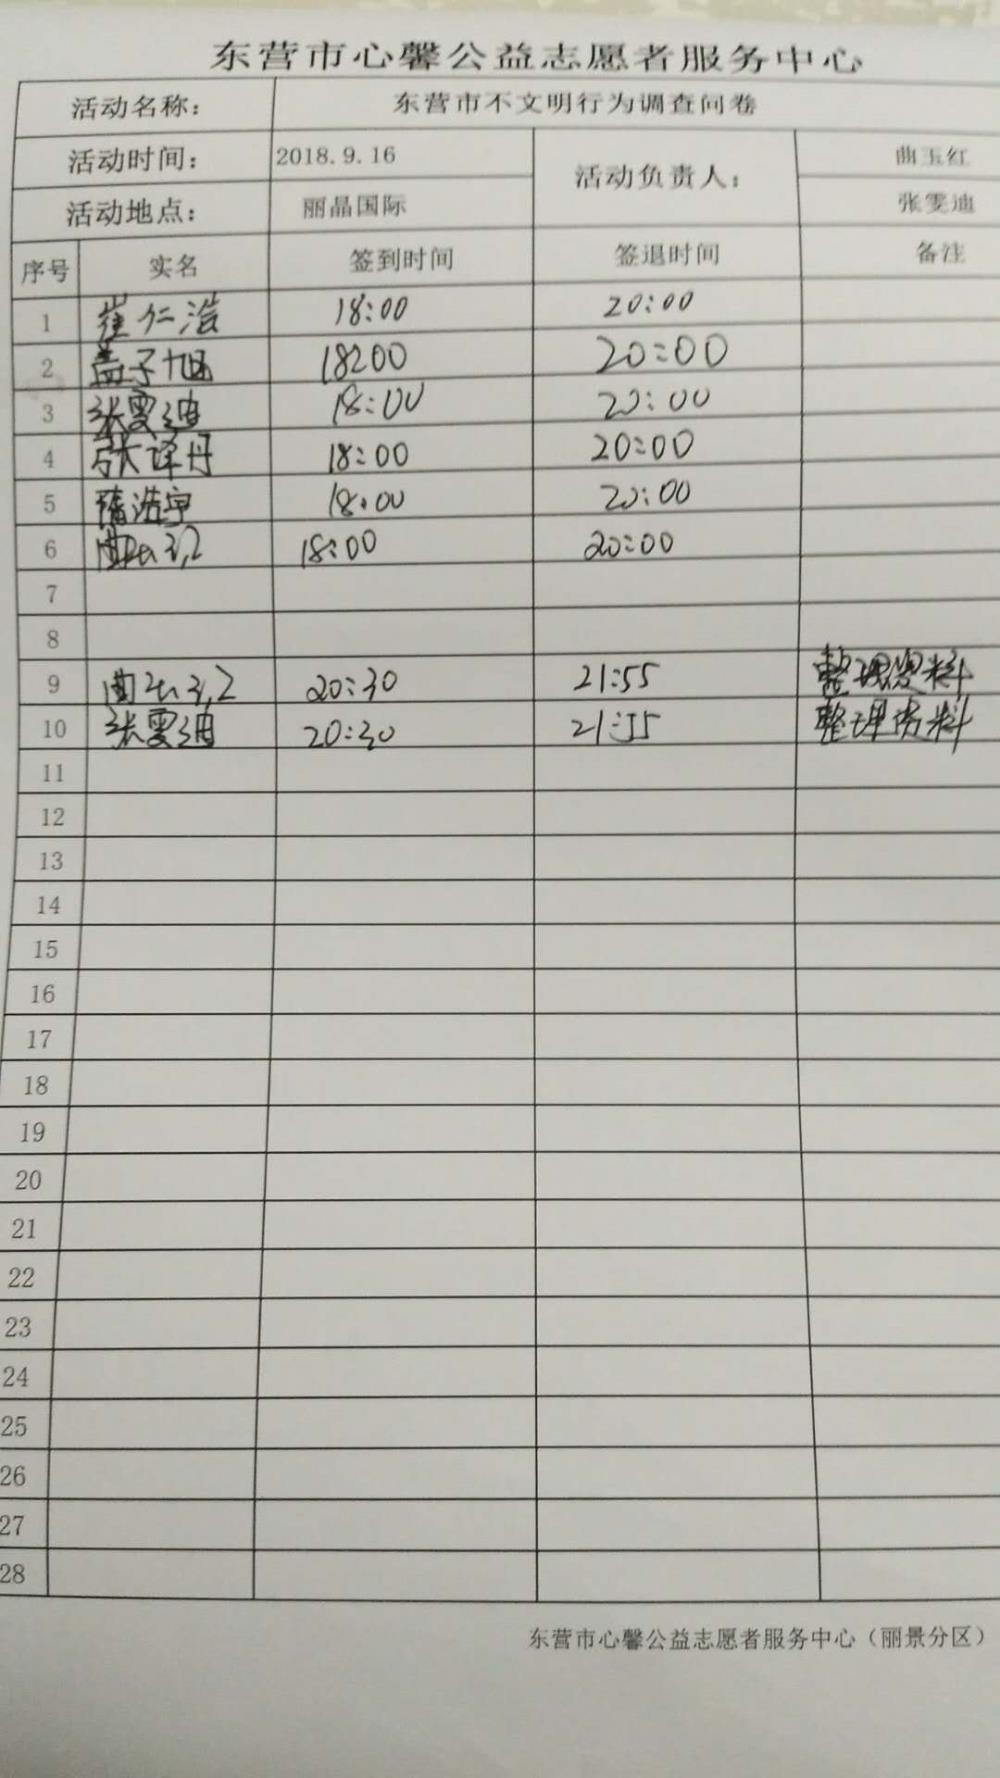 东营市心馨公益志愿者服务中心
活动名称： 东营市不文明行为调查问卷
活动时间： 2018.9.16 活动负责人： 曲玉红
活动地点： 丽晶国际 张雯迪
序号 实名 签到时间 签退时间 备注
1 崔仁浩 18:00 20:00
2 孟子旭 18:00 20:00
3 张雯迪 18:00 20:00
4 张译丹 18:00 20:00
5 浩宇 18:00 20:00
6 曲玉红 18:00 20:00
7
8
9 曲玉红 20:30 21:55 整理资料
10 张雯迪 20:30 21:55 整理资料
11
12
13
14
15
16
17
18
19
20
21
22
23
24
25
26
27
28
东营市心馨公益志愿者服务中心（丽景分区）